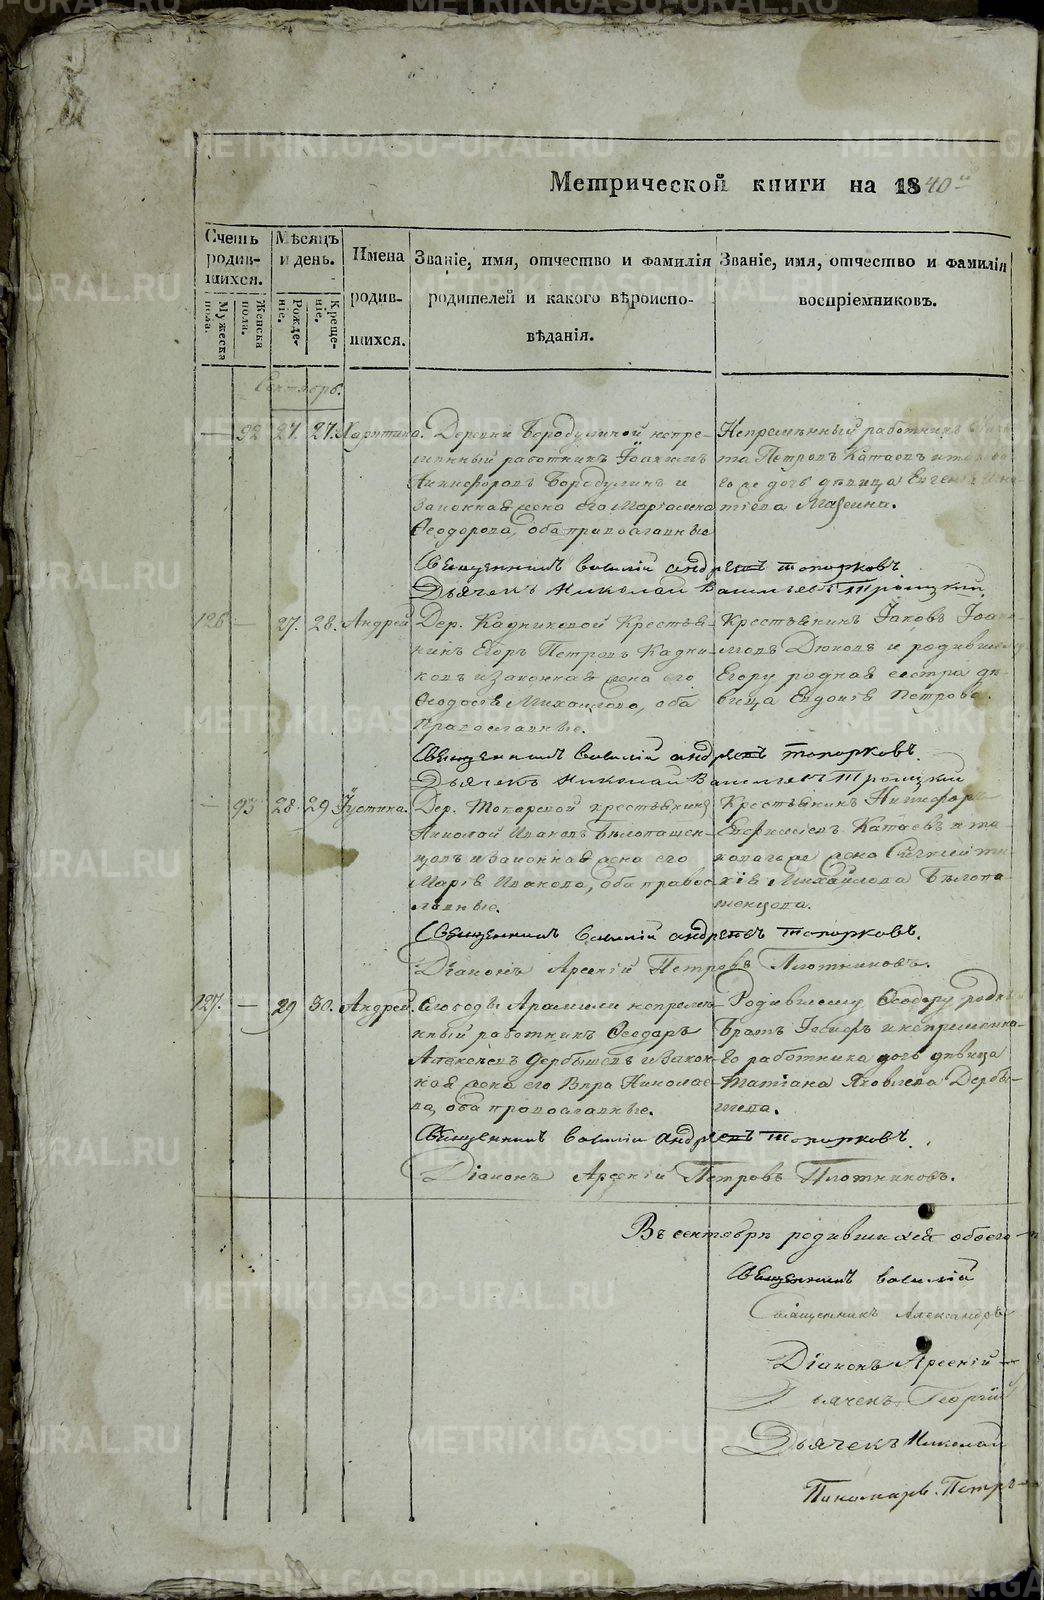 Метрической книги на 1840й
Счетъ родившихся.
Мѣсяцъ и день.
Имена родившихся.
Званіе, имя, отчество и фамилія родителей и какого вѣроисповѣданія.
Званіе, имя, отчество и фамилія воспріемниковъ.
Мужеска пола.
Женска пола.
Рожденіе.
Крещеніе.
Сентябрь.
— 92 27. 27. Харитина.
Деревни Бородулиной непре-
мѣнный работникъ Іоакимъ
Никифоровъ Бородулинъ и
законная жена его Маріамна
Ѳеодорова, оба православные
Непремѣнный работникъ
та Петровъ Катаевъ и
го же дочь дѣвица Евгенія
тіева Мазеина.
Священникъ Василій Андреевъ Топорковъ
Дьячекъ Николай Васильевъ Троицкій.
126 — 27. 28. Андрей
Дер. Кадниковой Крестья-
нинъ Егоръ Петровъ Кадни-
ковъ и законная жена его
Ѳеодосія Михайлова, оба
православные.
Крестьянинъ Іаковъ
Дюковъ и родившему
Егору родная сестра дѣ-
вица Евдокія Петрова.
Священникъ Василій Андреевъ Топорковъ.
Дьячекъ Николай Васильевъ Троицкій
— 93 28. 29 Іустина.
Дер. Токаревой крестьянинъ
Николай Ивановъ Бѣлопашен-
цовъ и законная жена его
Марія Иванова, оба право-
славные.
Крестьянинъ Никифоръ
Евфиміевъ Катаевъ и та-
коваго же жена
Михайлова Бѣлопа-
шенцова.
Священникъ Василій Андреевъ Топорковъ.
Діаконъ Арсеній Петровъ Плотниковъ.
127. — 29 30. Андрей.
Слободы Арамили непремѣ-
нный работникъ Ѳеодоръ
Алексѣевъ Дербышевъ и закон-
ная жена его Вѣра Николае-
ва, оба православные.
Родившему Ѳеодору родный
братъ Іосифъ и непремѣнна-
го работника дочь дѣвица
Татіана Яковлева Дербы-
шева.
Священникъ Василій Андреевъ Топорковъ.
Діаконъ Арсеній Петровъ Плотниковъ.
Въ сентябрѣ родившихся обоего
Священникъ Василій
Священникъ Александръ
Діаконъ Арсеній
Дьячекъ Георгій
Дьячекъ Николай
Пономарь Петръ
METRIKI.GASO-URAL.RU